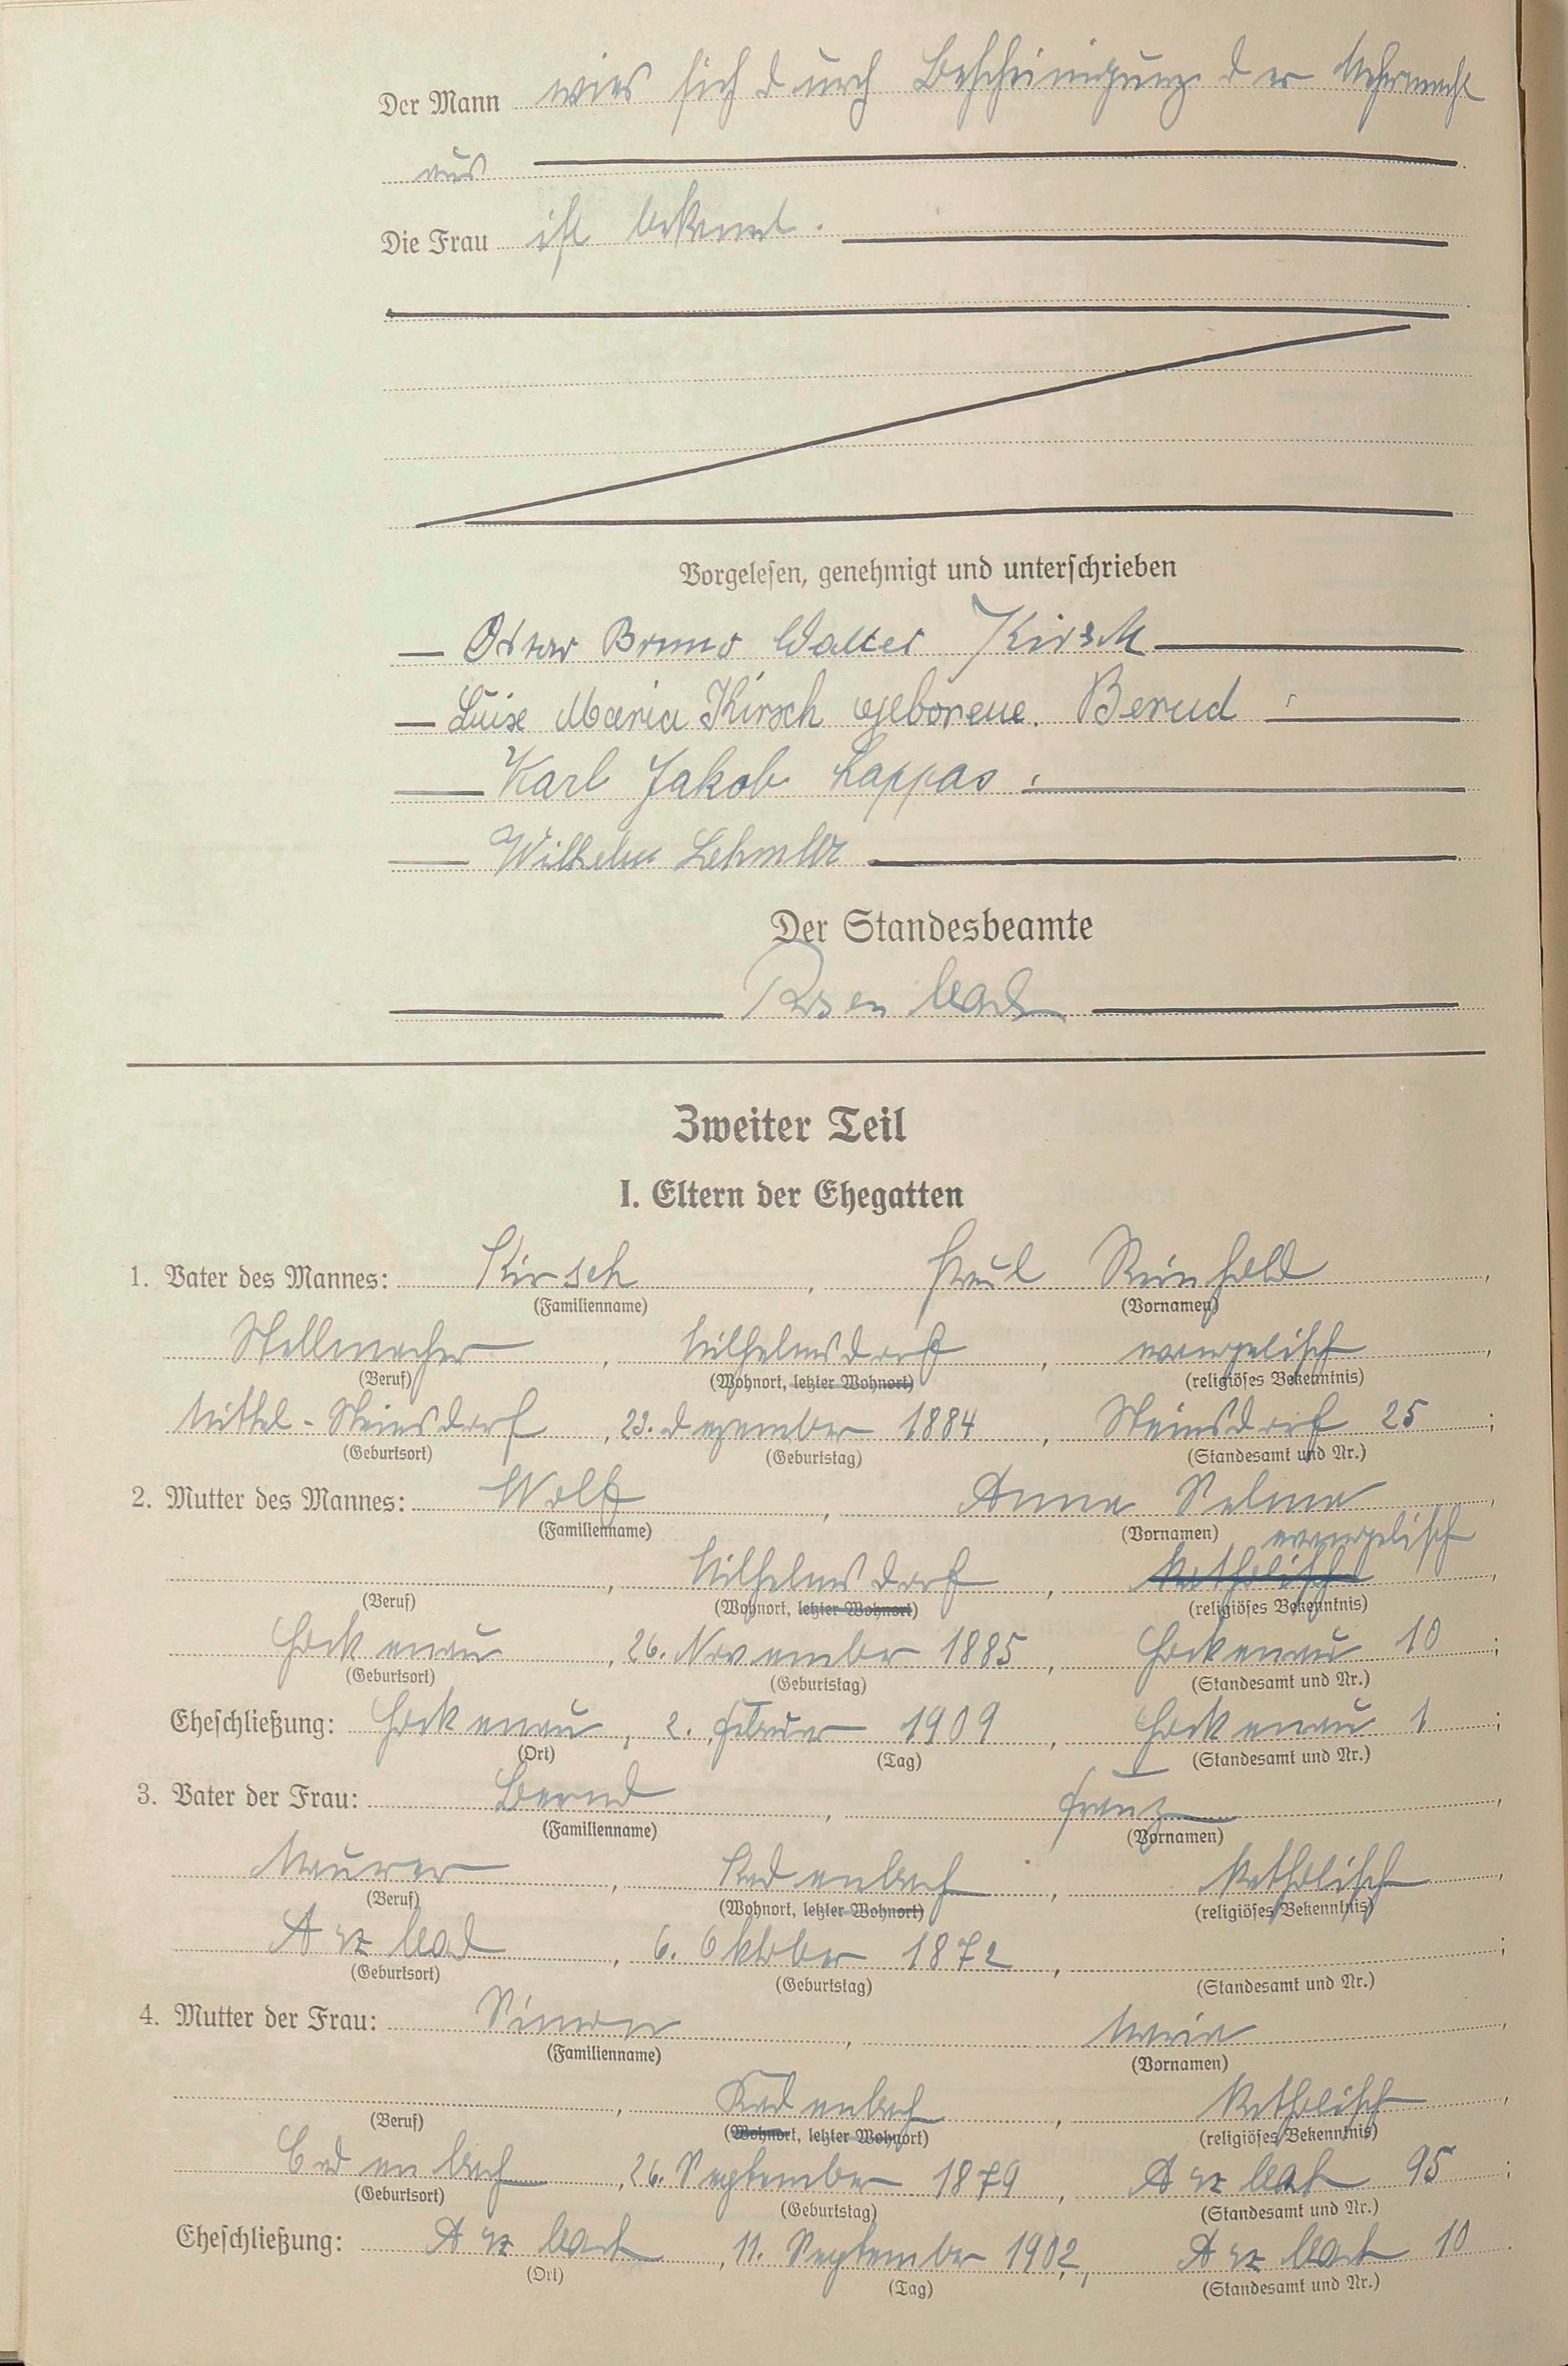 Der Mann wies sich durch Bescheinigung der Wehrmacht
aus
Die Frau ist bekannt.
Vorgelesen, genehmigt und unterschrieben
Oskar Bruno Walter Kirsch
Luise Maria Kirsch geborene Bernd
Karl Jakob Lappas
Wilhelm Lehmler
Der Standesbeamte
Rosenbach
Zweiter Teil
I. Eltern der Ehegatten
1. Vater des Mannes: Kirsch, Paul Reinhold
(Familienname) (Vornamen)
Stellmacher, Wilhelmsdorf, evangelisch,
(Beruf) (Wohnort, letzter Wohnort) (religiöses Bekenntnis)
Mittel-Steinsdorf, 23. Dezember 1884, Steinsdorf 25;
(Geburtsort) (Geburtstag) (Standesamt und Nr.)
2. Mutter des Mannes: Wolf, Anna Selma,
(Familienname) (Vornamen) evangelisch
, Wilhelmsdorf, katholisch,
(Beruf) (Wohnort, letzter Wohnort) (religiöses Bekenntnis)
Hockenau, 26. November 1885, Hockenau 10;
(Geburtsort) (Geburtstag) (Standesamt und Nr.)
Eheschließung: Hockenau, 2. Februar 1909, Hockenau 1;
(Ort) (Tag) (Standesamt und Nr.)
3. Vater der Frau: Bernd, Franz,
(Familienname) (Vornamen)
Maurer, Kadenbach, katholisch,
(Beruf) (Wohnort, letzter Wohnort) (religiöses Bekenntnis)
Arzbach, 6. Oktober 1872,;
(Geburtsort) (Geburtstag) (Standesamt und Nr.)
4. Mutter der Frau: Simon, Maria,
(Familienname) (Vornamen)
, Kadenbach, katholisch,
(Beruf) (Wohnort, letzter Wohnort) (religiöses Bekenntnis)
Cadenbach, 26. September 1879, Arzbach 95;
(Geburtsort) (Geburtstag) (Standesamt und Nr.)
Eheschließung: Arzbach, 11. September 1902, Arzbach 10.
(Ort) (Tag) (Standesamt und Nr.)